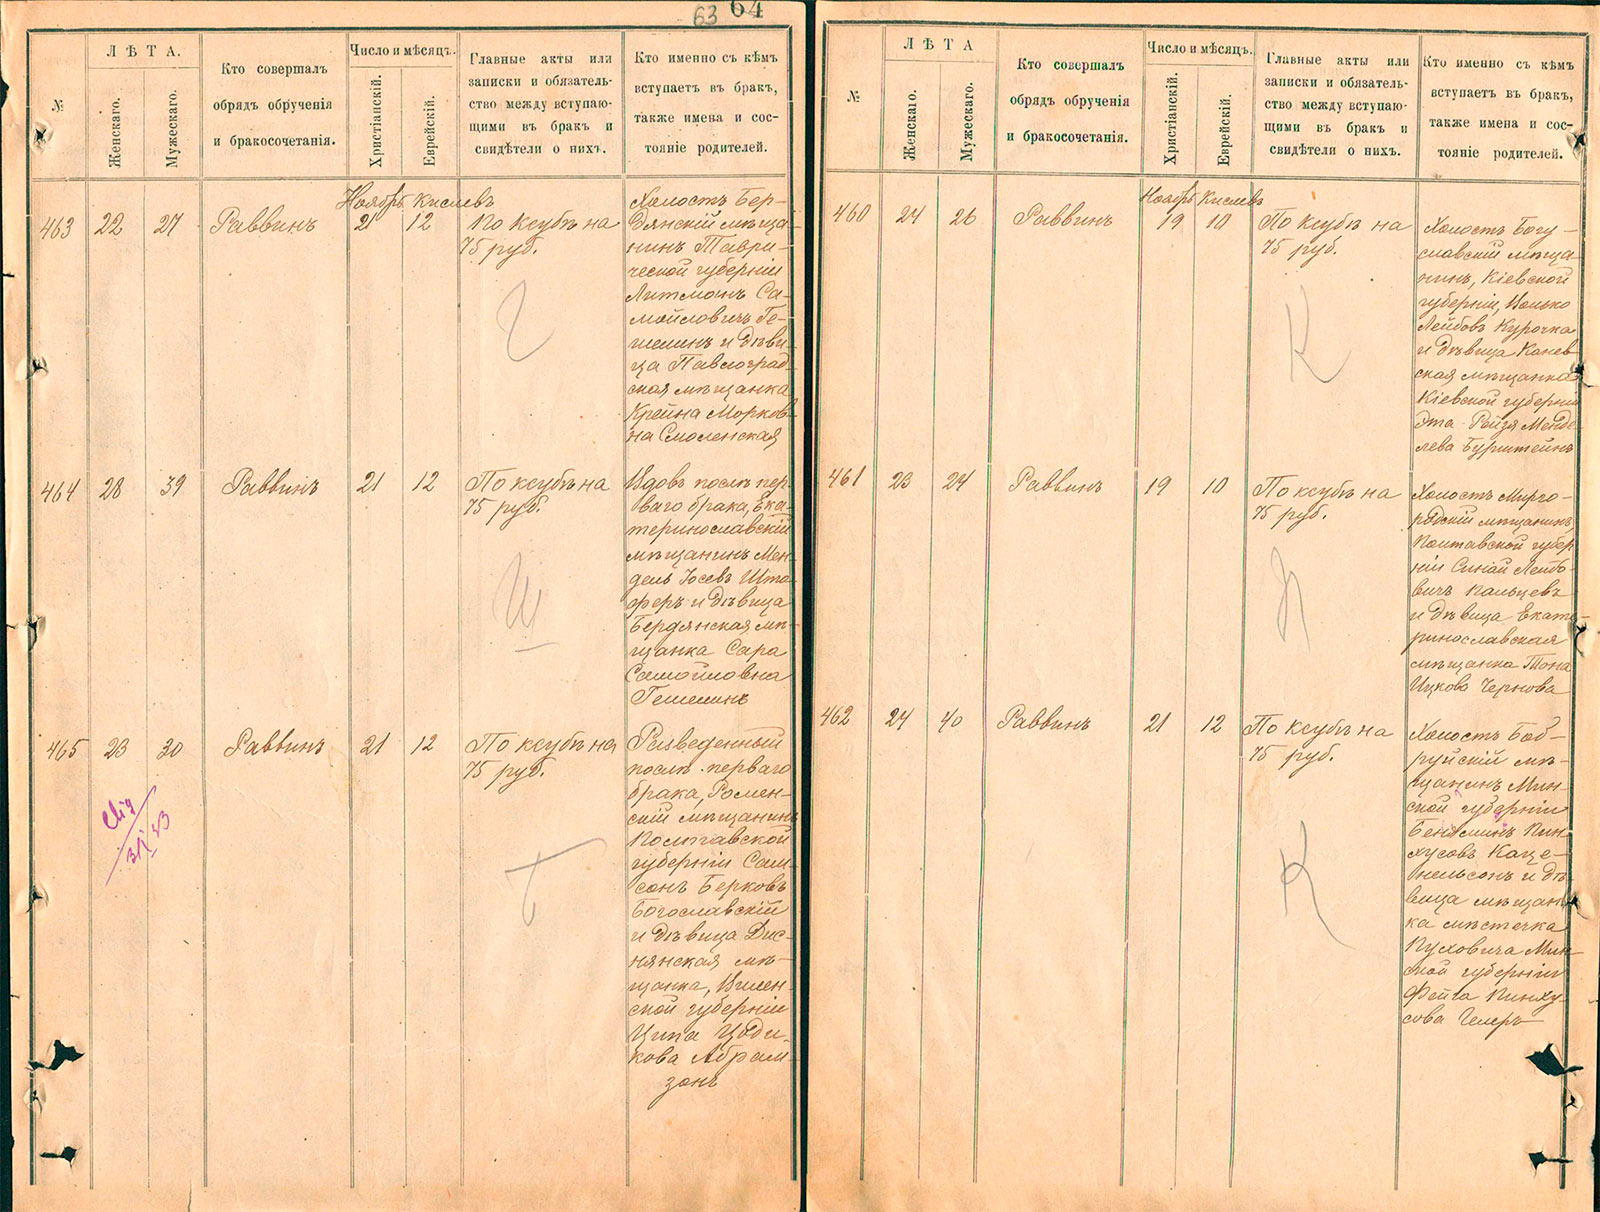 63 64
№
ЛѢТА.
Женскаго.
Мужескаго.
Кто совершалъ
обрядъ обрученія
и бракосочетанія.
Число и мѣсяцъ.
Христіанскій.
Еврейскій.
Главные акты или
записки и обязатель-
ство между вступаю-
щими въ бракъ и
свидѣтели о нихъ.
Кто именно съ кѣмъ
вступаетъ въ бракъ,
также имена и сос-
тояніе родителей.
Ноябрь Кислевъ
463 22 27 Раввинъ 21 12 По ксубѣ на
75 руб.
Холостъ Бер-
дянскій мѣща-
нинъ Таври-
ческой губерніи
Литманъ Са-
мойловичъ Ге-
шелинъ и дѣви-
ца Павлоград-
ская мѣщанка
Крейна Марков-
на Смоленская
Г
464 28 39 Раввинъ 21 12 По ксубѣ на
75 руб.
Вдовъ послѣ пер-
ваго брака, Ека-
теринославскій
мѣщанинъ Мен-
дель Іосевъ Шта-
феръ и дѣвица
Бердянская мѣ-
щанка Сара
Самойловна
Гешелинъ
Ш
465 23 30 Раввинъ 21 12 По ксубѣ на
75 руб.
Разведенный
послѣ перваго
брака, Ромен-
скій мѣщанинъ
Полтавской
губерніи Сам-
сонъ Берковъ
Богославскій
и дѣвица Дис-
нянская мѣ-
щанка, Вилен-
ской губерніи
Ципа Цоди-
кова Абрам-
зонъ
№
ЛѢТА
Женскаго.
Мужескаго.
Кто совершалъ
обрядъ обрученія
и бракосочетанія.
Число и мѣсяцъ.
Христіанскій.
Еврейскій.
Главные акты или
записки и обязатель-
ство между вступаю-
щими въ бракъ и
свидѣтели о нихъ.
Кто именно съ кѣмъ
вступаетъ въ бракъ,
также имена и сос-
тояніе родителей.
Ноябрь Кислевъ
460 24 26 Раввинъ 19 10 По ксубѣ на
75 руб.
Холостъ Богу-
славскій мѣща-
нинъ, Кіевской
губерніи, Іонько
Лейбовъ Курочка
и дѣвица Канев-
ская мѣщанка
Кіевской губерніи
Эта-Ройзя Менде-
лева Бурштейнъ
К
461 23 24 Раввинъ 19 10 По ксубѣ на
75 руб.
Холостъ Мирго-
родскій мѣщанинъ,
Полтавской губер-
ніи Синай Лейбо-
вичъ Пальцевъ
и дѣвица Екате-
ринославская
мѣщанка Тона
Ицкова Чернова
П
462 24 40 Раввинъ 21 12 По ксубѣ на
75 руб.
Холостъ Боб-
руйскій мѣ-
щанинъ Мин-
ской губерніи
Беніаминъ Пин-
хусовъ Каце-
нельсонъ и дѣ-
вица мѣщан-
ка мѣстечка
Пуховича Мин-
ской губерніи
Фейга Пинху-
сова Гелеръ
К